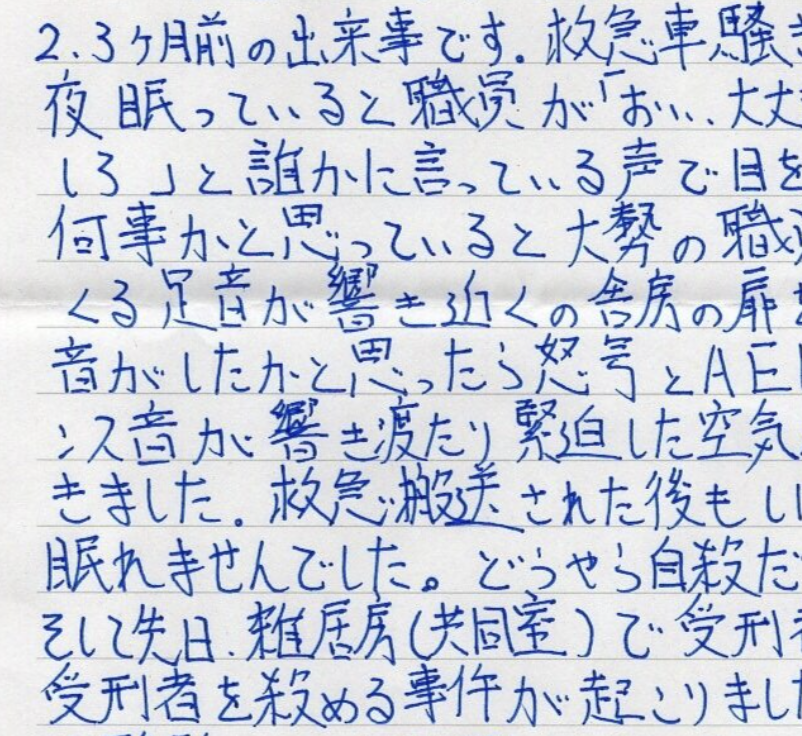 2.3ヶ月前の出来事です。救急車騒
夜眠っていると職員が「おい、大丈
しろ」と誰かに言っている声で目を
何事かと思っていると大勢の職
くる足音が響き近くの舎房の扉
音がしたかと思ったら怒号とAE
ンス音が響き渡たり緊迫した空気
きました。救急搬送された後もし
眠れませんでした。どうやら自殺だ
そして先日、雑居房(共同室)で受刑
受刑者を殺める事件が起こりまし